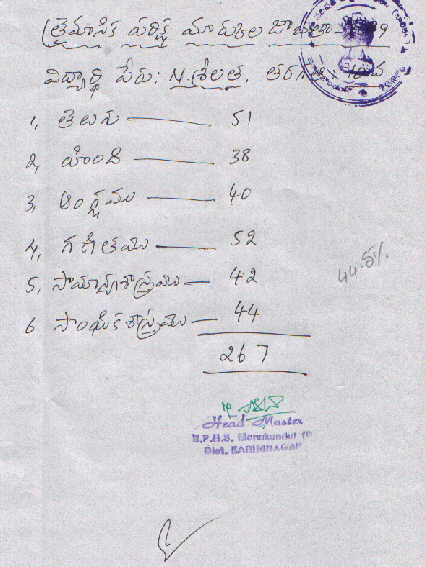 త్రైమాసిక పరీక్ష మార్కుల జాబితా
విద్యార్థి పేరు: N. శ్రీలత, తరగతి:
1, తెలుగు — 51
2, హిందీ — 38
3, ఆంగ్లము — 40
4, గణితము — 52
5, సామాన్యశాస్త్రము — 42
6 సాంఘీకశాస్త్రము — 44
267
44.5%
Head Master
Dist. KARIMNAGAR